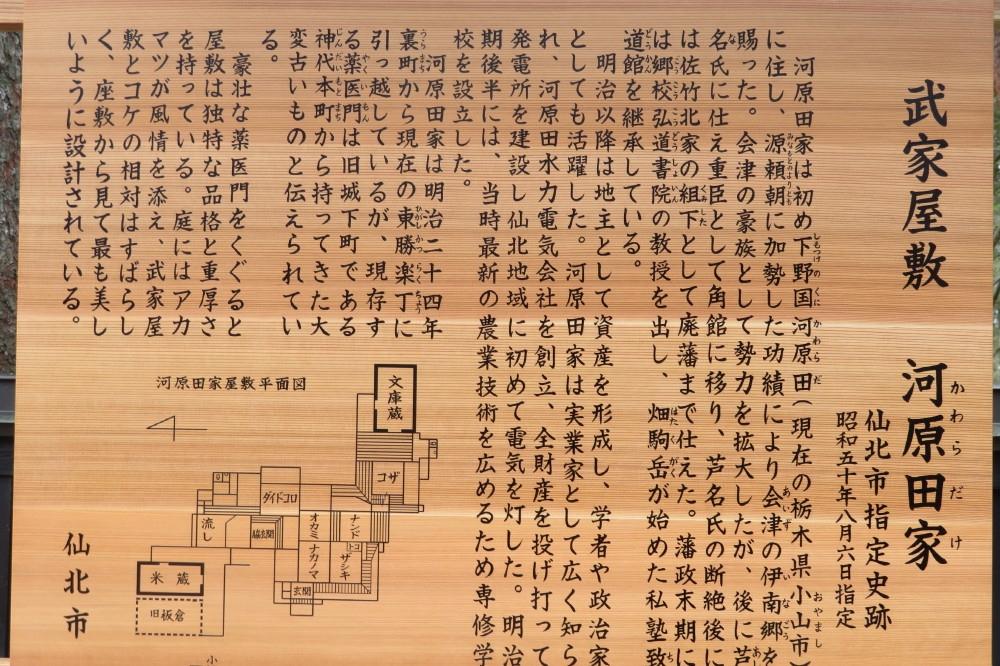 武家屋敷 河原田家
かわらだけ
仙北市指定史跡
昭和五十年八月六日指定
河原田家は初め下野国河原田(現在の栃木県小山市)
に住し、源頼朝に加勢した功績により会津の伊南郷を
賜った。会津の豪族として勢力を拡大したが、後に芦
名氏に仕え重臣として角館に移り、芦名氏の断絶後に
は佐竹北家の組下として廃藩まで仕えた。藩政末期に
は郷校弘道書院の教授を出し、畑駒岳が始めた私塾致
道館を継承している。
明治以降は地主として資産を形成し、学者や政治家
としても活躍した。河原田家は実業家として広く知ら
れ、河原田水力電気会社を創立、全財産を投げ打って
発電所を建設し仙北地域に初めて電気を灯した。明治
期後半には、当時最新の農業技術を広めるため専修学
校を設立した。
河原田家は明治二十四年
裏町から現在の東勝楽丁に
引っ越しているが、現存す
る薬医門は旧城下町である
神代本町から持ってきた大
変古いものと伝えられてい
る。
豪壮な薬医門をくぐると
屋敷は独特な品格と重厚さ
を持っている。庭にはアカ
マツが風情を添え、武家屋
敷とコケの相対はすばらし
く、座敷から見て最も美し
いように設計されている。
河原田家屋敷平面図
文庫蔵
コザ
ダイドコロ
流し
脇玄関
オカミ
ナンド
トコ
ザシキ
ナカノマ
玄関
米蔵
旧板倉
小
仙北市